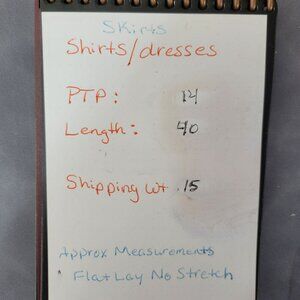 Skirts
Shirts/dresses
PTP: 14
Length: 40
Shipping wt .15
Approx Measurements
Flat Lay No Stretch